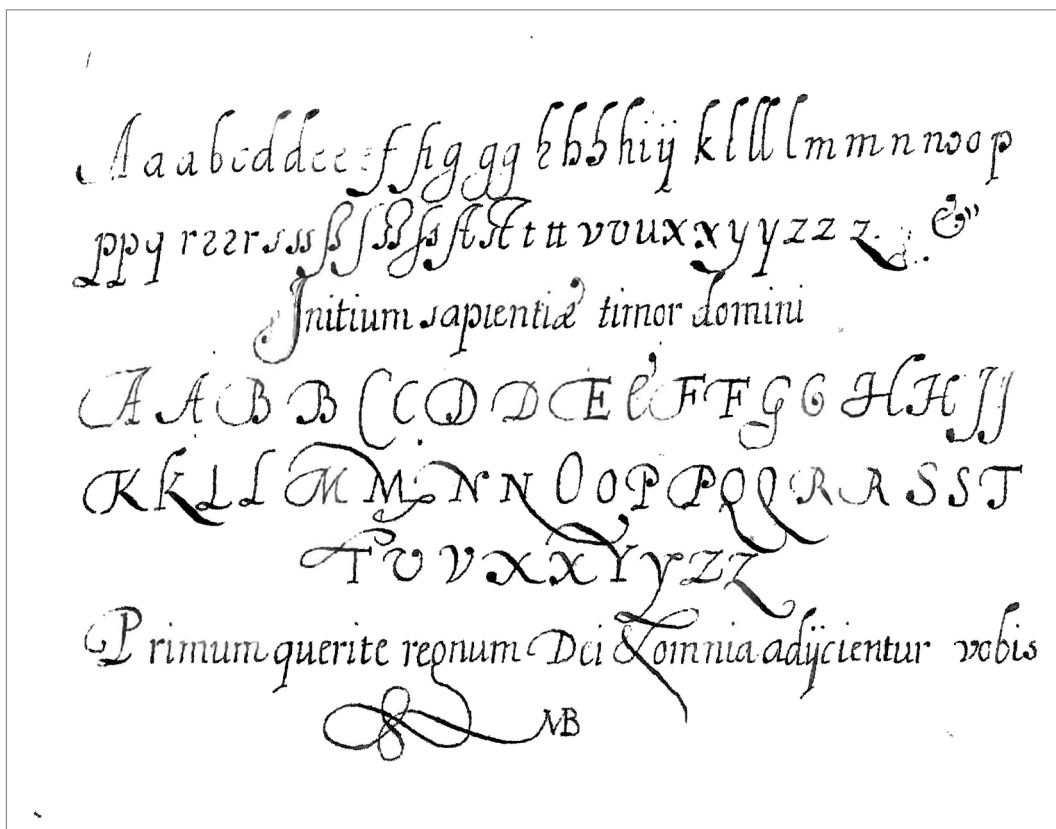 A a a b c d d e e e f ff i g g g h h h h i ij k l l l l m m n n o o p
p p q r r r r s s s ß ſ ß ß ſs ſt st t tt v v u x x y y z z z &
Initium sapientiæ timor domini
A A B B C C D D E E F F G G H H J J
K K L L M M N N O O P P Q Q R R S S T
T V V X X Y Y Z Z
Primum querite regnum Dei & omnia adijcientur vobis
MB